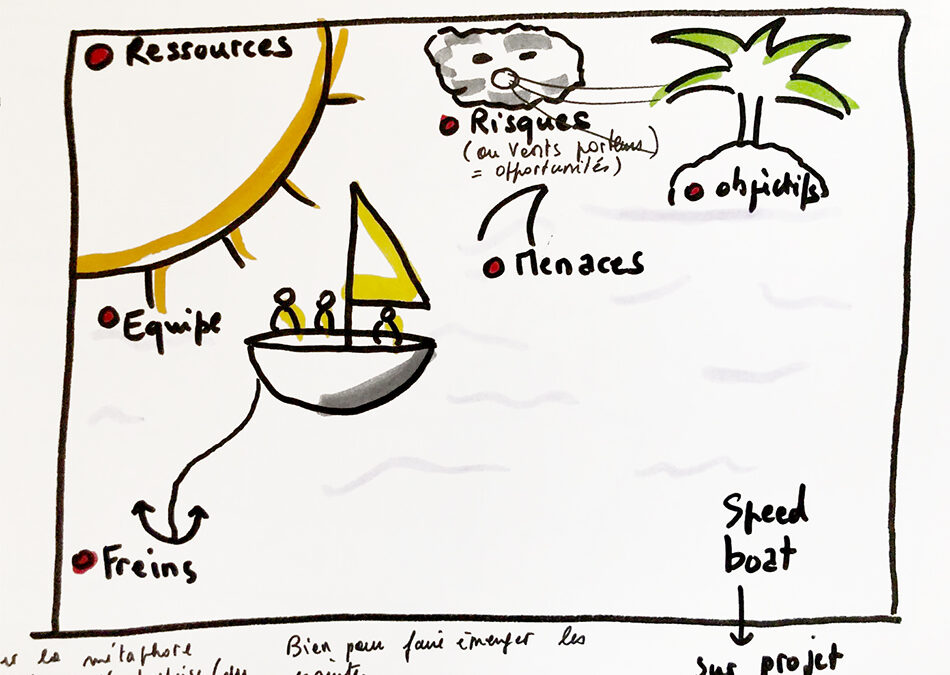 Ressources
Risques
(ou vents porteurs)
= opportunités)
objectifs
Menaces
Equipe
Freins
Speed
boat
sur projet
la métaphore
Bien pour faire émerger les